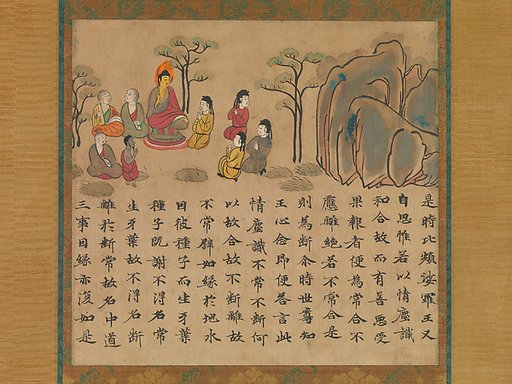 是時比頻娑羅王又
自思惟若以情塵識
和合故而有善惡受
果報者便為常合不
應離絕若不常合是
則為断尒時世尊知
王心念即便荅言此
情塵識不常不断何
以故合故不断離故
不常譬如緣於地水
因彼種子而生牙葉
種子既謝不得名常
生牙葉故不得名断
離於断常故名中道
三事因緣亦復如是